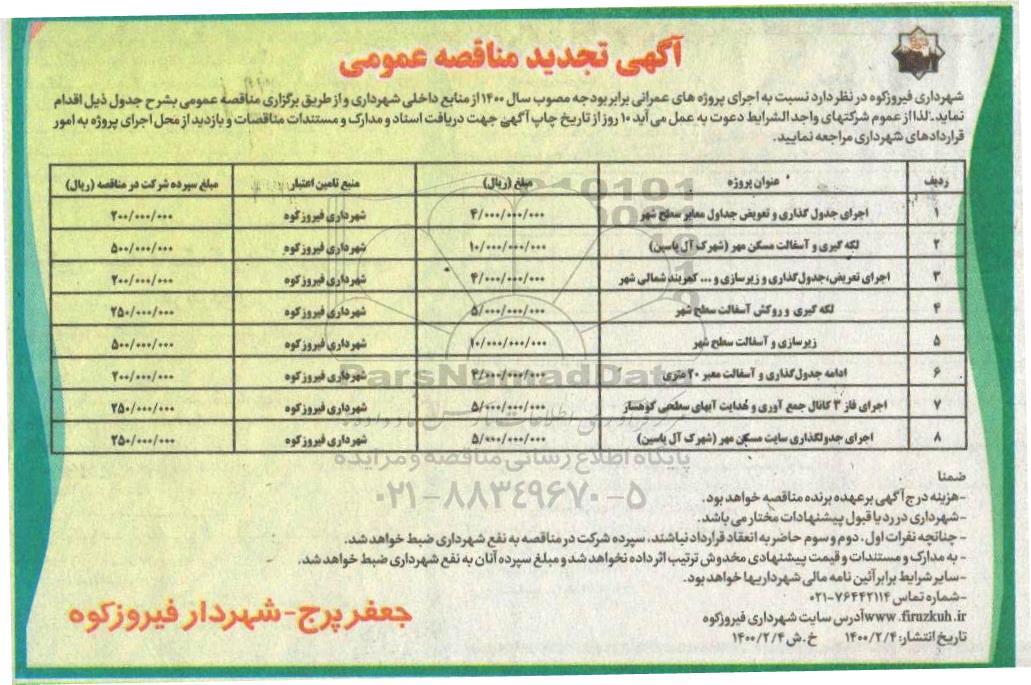 آگهی تجدید مناقصه عمومی
شهرداری فیروزکوه در نظر دارد نسبت به اجرای پروژه های عمرانی برابر بودجه مصوب سال ۱۴۰۰ از منابع داخلی شهرداری و از طریق برگزاری مناقصه عمومی بشرح جدول ذیل اقدام
نماید. لذا از عموم شرکتهای واجد الشرایط دعوت به عمل می آید ۱۰ روز از تاریخ چاپ آگهی جهت دریافت اسناد و مدارک و مستندات مناقصات و بازدید از محل اجرای پروژه به امور
قراردادهای شهرداری مراجعه نمایید.
ردیف عنوان پروژه مبلغ (ریال) منبع تامین اعتبار مبلغ سپرده شرکت در مناقصه (ریال)
۱ اجرای جدول گذاری و تعویض جداول معابر سطح شهر ۴/۰۰۰/۰۰۰/۰۰۰ شهرداری فیروزکوه ۲۰۰/۰۰۰/۰۰۰
۲ لکه گیری و آسفالت مسکن مهر (شهرک آل یاسین) ۱۰/۰۰۰/۰۰۰/۰۰۰ شهرداری فیروزکوه ۵۰۰/۰۰۰/۰۰۰
۳ اجرای تعریض،جدول گذاری و زیرسازی و ... کمربند شمالی شهر ۴/۰۰۰/۰۰۰/۰۰۰ شهرداری فیروزکوه ۲۰۰/۰۰۰/۰۰۰
۴ لکه گیری و روکش آسفالت سطح شهر ۵/۰۰۰/۰۰۰/۰۰۰ شهرداری فیروزکوه ۲۵۰/۰۰۰/۰۰۰
۵ زیرسازی و آسفالت سطح شهر ۱۰/۰۰۰/۰۰۰/۰۰۰ شهرداری فیروزکوه ۵۰۰/۰۰۰/۰۰۰
۶ ادامه جدول گذاری و آسفالت معبر ۲۰ متری ۴/۰۰۰/۰۰۰/۰۰۰ شهرداری فیروزکوه ۲۰۰/۰۰۰/۰۰۰
۷ اجرای فاز ۳ کانال جمع آوری و هدایت آبهای سطحی کوهسار ۵/۰۰۰/۰۰۰/۰۰۰ شهرداری فیروزکوه ۲۵۰/۰۰۰/۰۰۰
۸ اجرای جدولگذاری سایت مسکن مهر (شهرک آل یاسین) ۵/۰۰۰/۰۰۰/۰۰۰ شهرداری فیروزکوه ۲۵۰/۰۰۰/۰۰۰
ParsNamadData
پایگاه اطلاع رسانی مناقصه و مزایده
۰۲۱-۸۸۳۴۹۶۷۰-۵
ضمنا
-هزینه درج آگهی بر عهده برنده مناقصه خواهد بود.
-شهرداری در رد یا قبول پیشنهادات مختار می باشد.
- چنانچه نفرات اول، دوم و سوم حاضر به انعقاد قرارداد نباشند، سپرده شرکت در مناقصه به نفع شهرداری ضبط خواهد شد.
- به مدارک و مستندات و قیمت پیشنهادی مخدوش ترتیب اثر داده نخواهد شد و مبلغ سپرده آنان به نفع شهرداری ضبط خواهد شد.
-سایر شرایط برابر آئین نامه مالی شهرداریها خواهد بود.
-شماره تماس ۷۶۴۴۲۱۱۴-۰۲۱
www.firuzkuh.ir آدرس سایت شهرداری فیروزکوه
تاریخ انتشار: ۱۴۰۰/۲/۴ خ.ش ۱۴۰۰/۲/۴
جعفر پرج - شهردار فیروزکوه